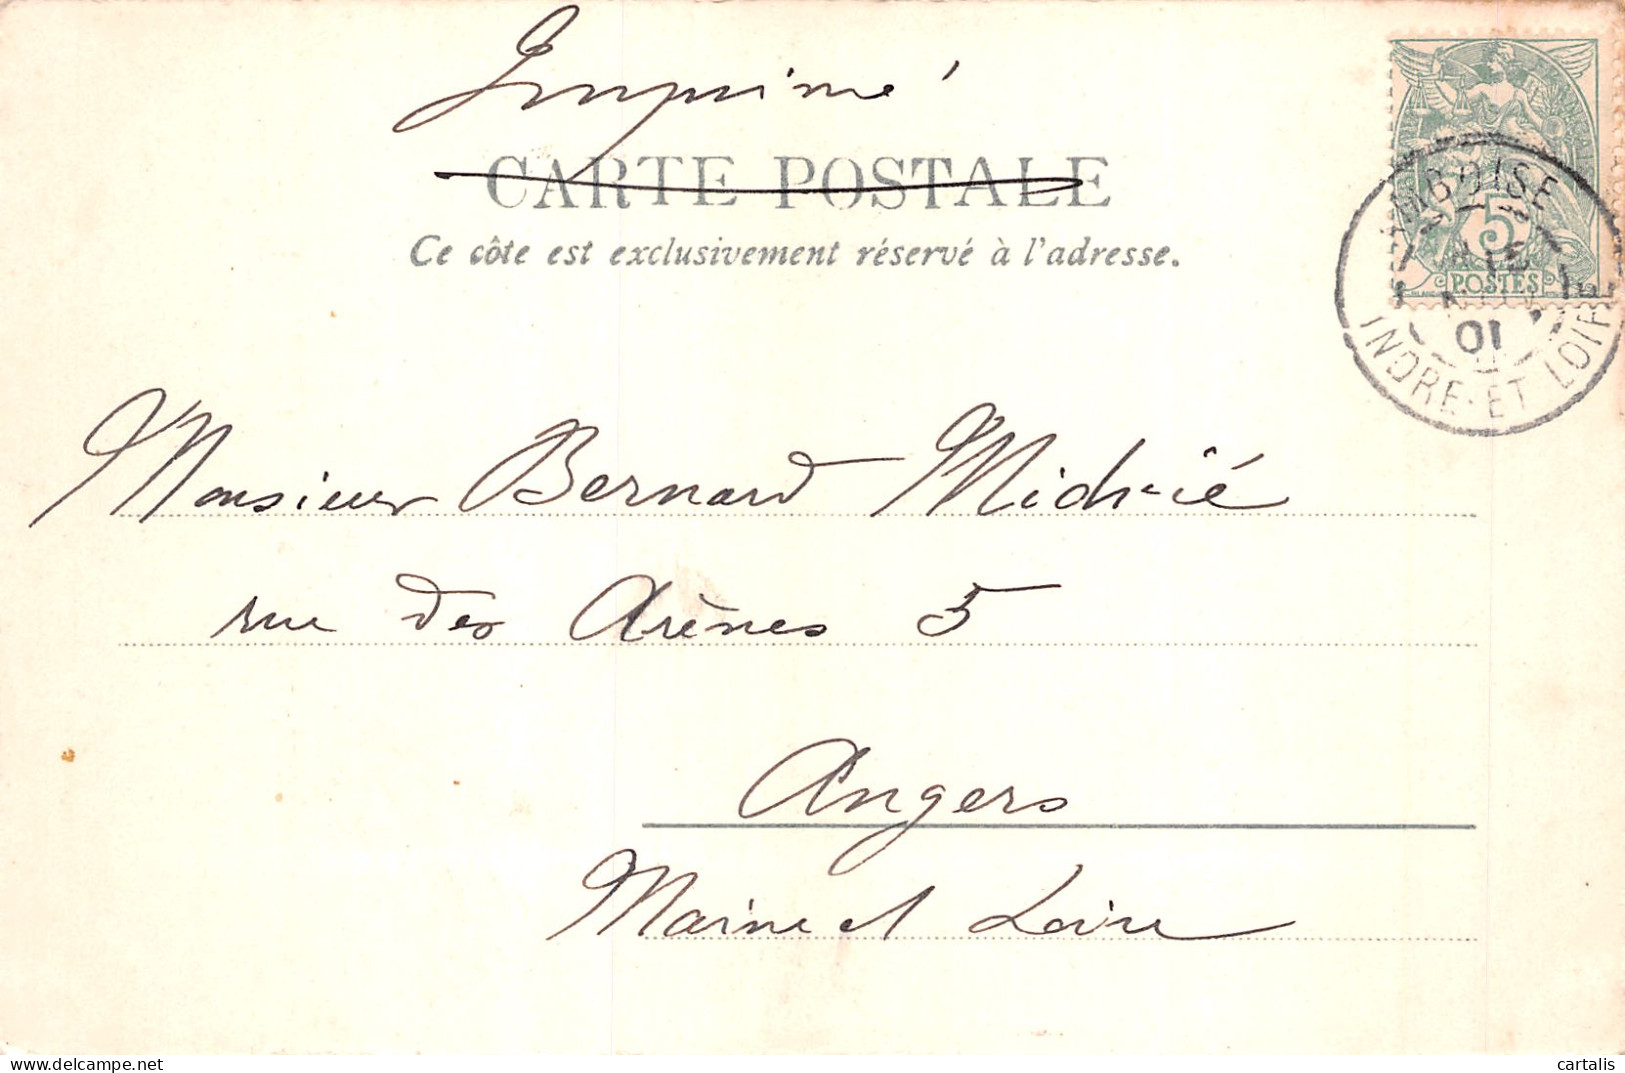 Imprimé
CARTE POSTALE
Ce côte est exclusivement réservé à l'adresse.
5
POSTES
AMBOISE
NOV
01
INDRE-ET-LOIRE
Monsieur Bernard
rue des Arènes 5
Angers
Maine et Loire
cartalis